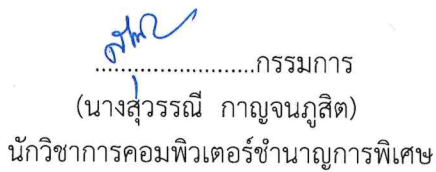 ..........................กรรมการ
(นางสุวรรณี กาญจนภูสิต)
นักวิชาการคอมพิวเตอร์ชำนาญการพิเศษ